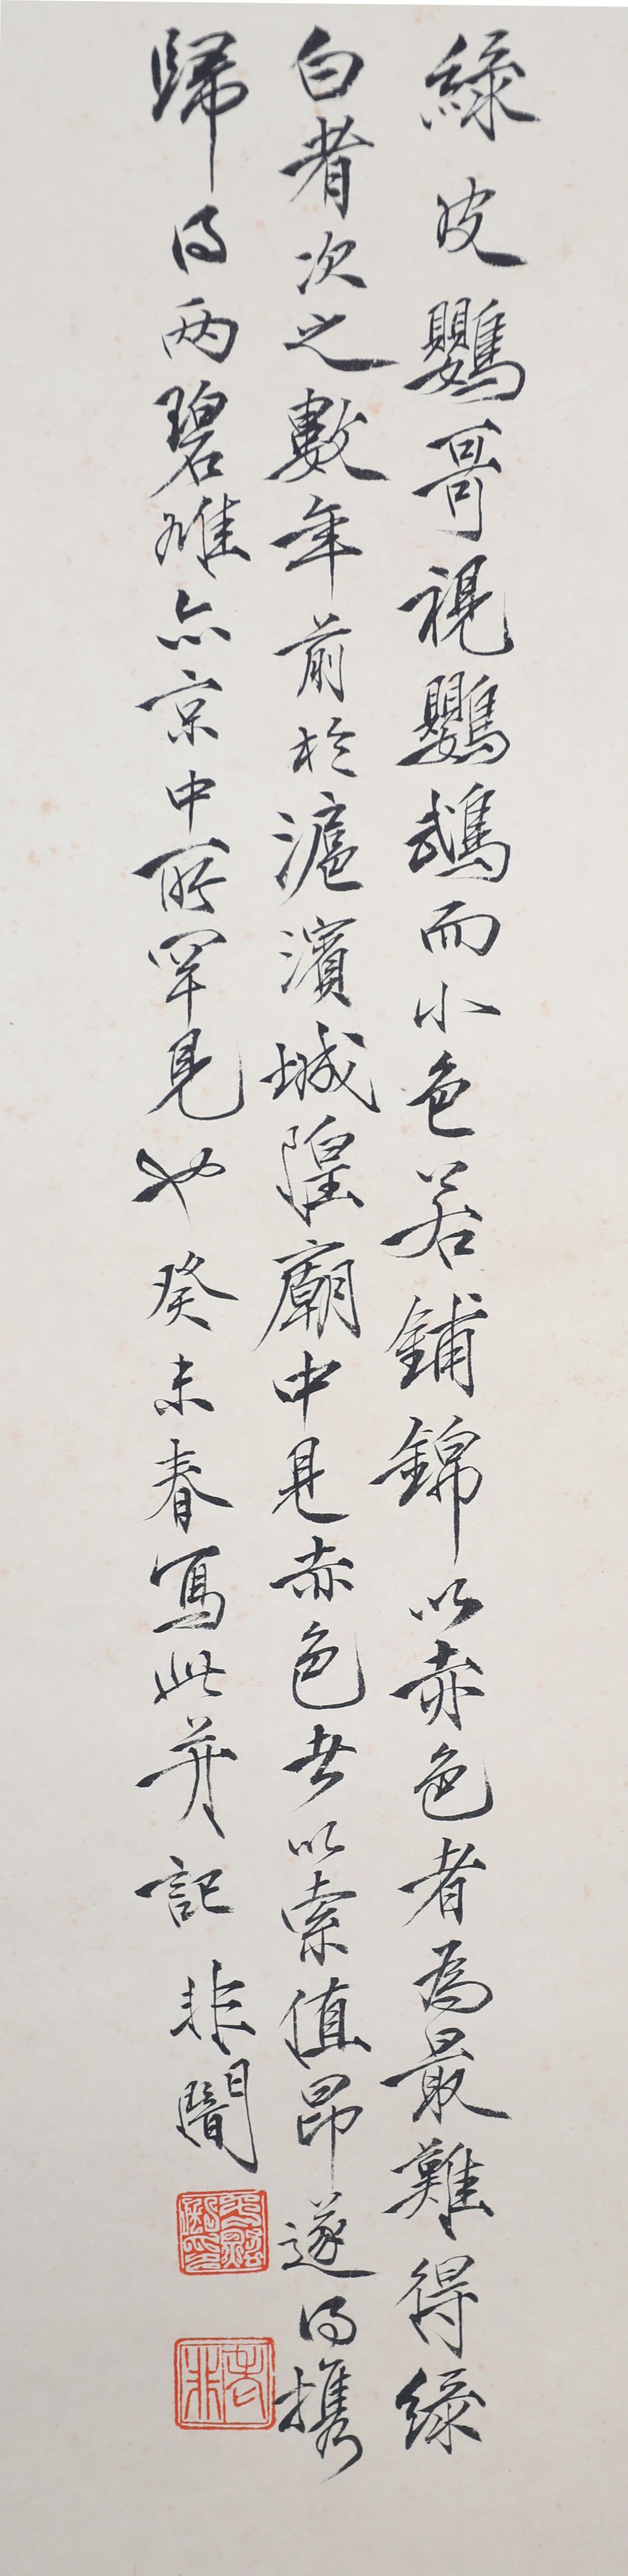 綠皮鸚哥視鸚鵡而小色若鋪錦以赤色者為最難得綠
白者次之數年前於滬濱城隍廟中見赤色者以索值昂遂得攜
歸得两碧雌亦京中所罕見也癸未春寫此并記非闇
老非